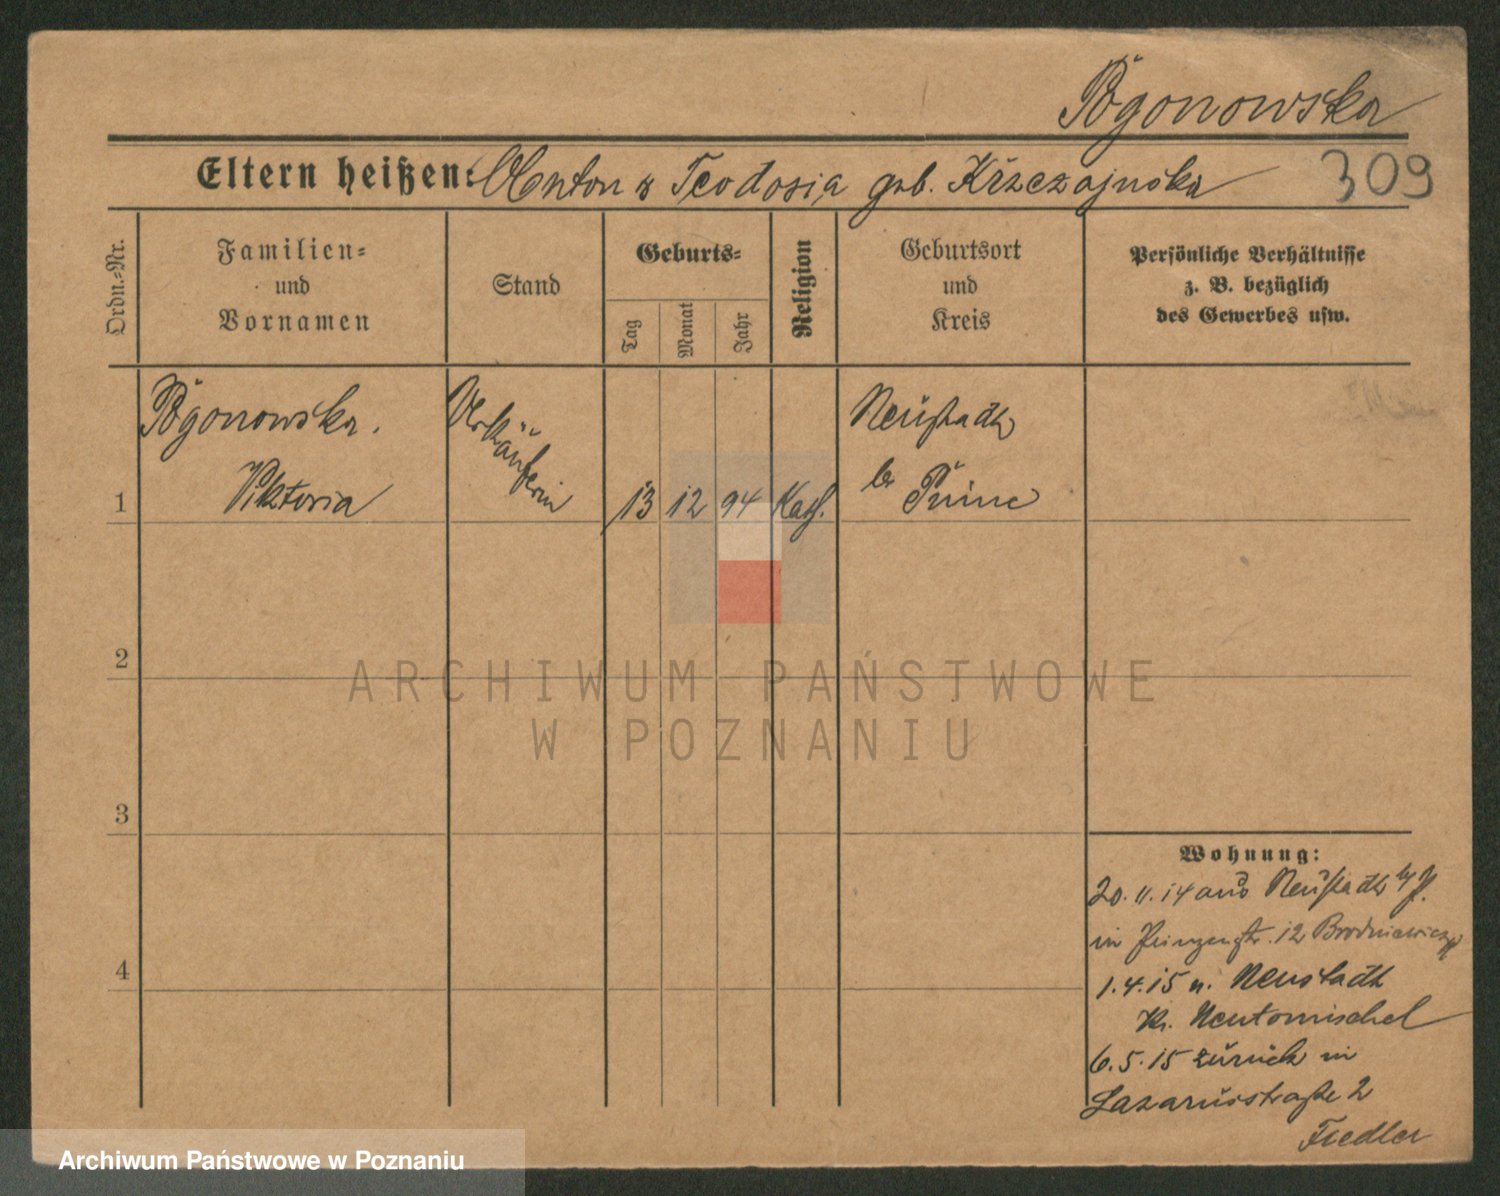 Bǒgonowska
Eltern heißen: Anton u Teodosia geb. Krzczajnska
309
Ordn.-Nr.
Familien-
und
Vornamen
Stand
Geburts-
Tag
Monat
Jahr
Religion
Geburtsort
und
Kreis
Persönliche Verhältnisse
z. B. bezüglich
des Gewerbes usw.
Viktoria
Verkäuferin
1
13 12 94 Kath.
Neustadt
bei Pinne
2
ARCHIWUM PAŃSTWOWE
W POZNANIU
3
4
Wohnung:
20. 11. 14 aus Neustadt b/P.
in Prinzenstr. 12 Brodniewicz
1. 4. 15 n. Neustadt
Kr. Neutomischel
6. 5. 15 zurück in
Lazarusstraße 2
Fiedler
Archiwum Państwowe w Poznaniu